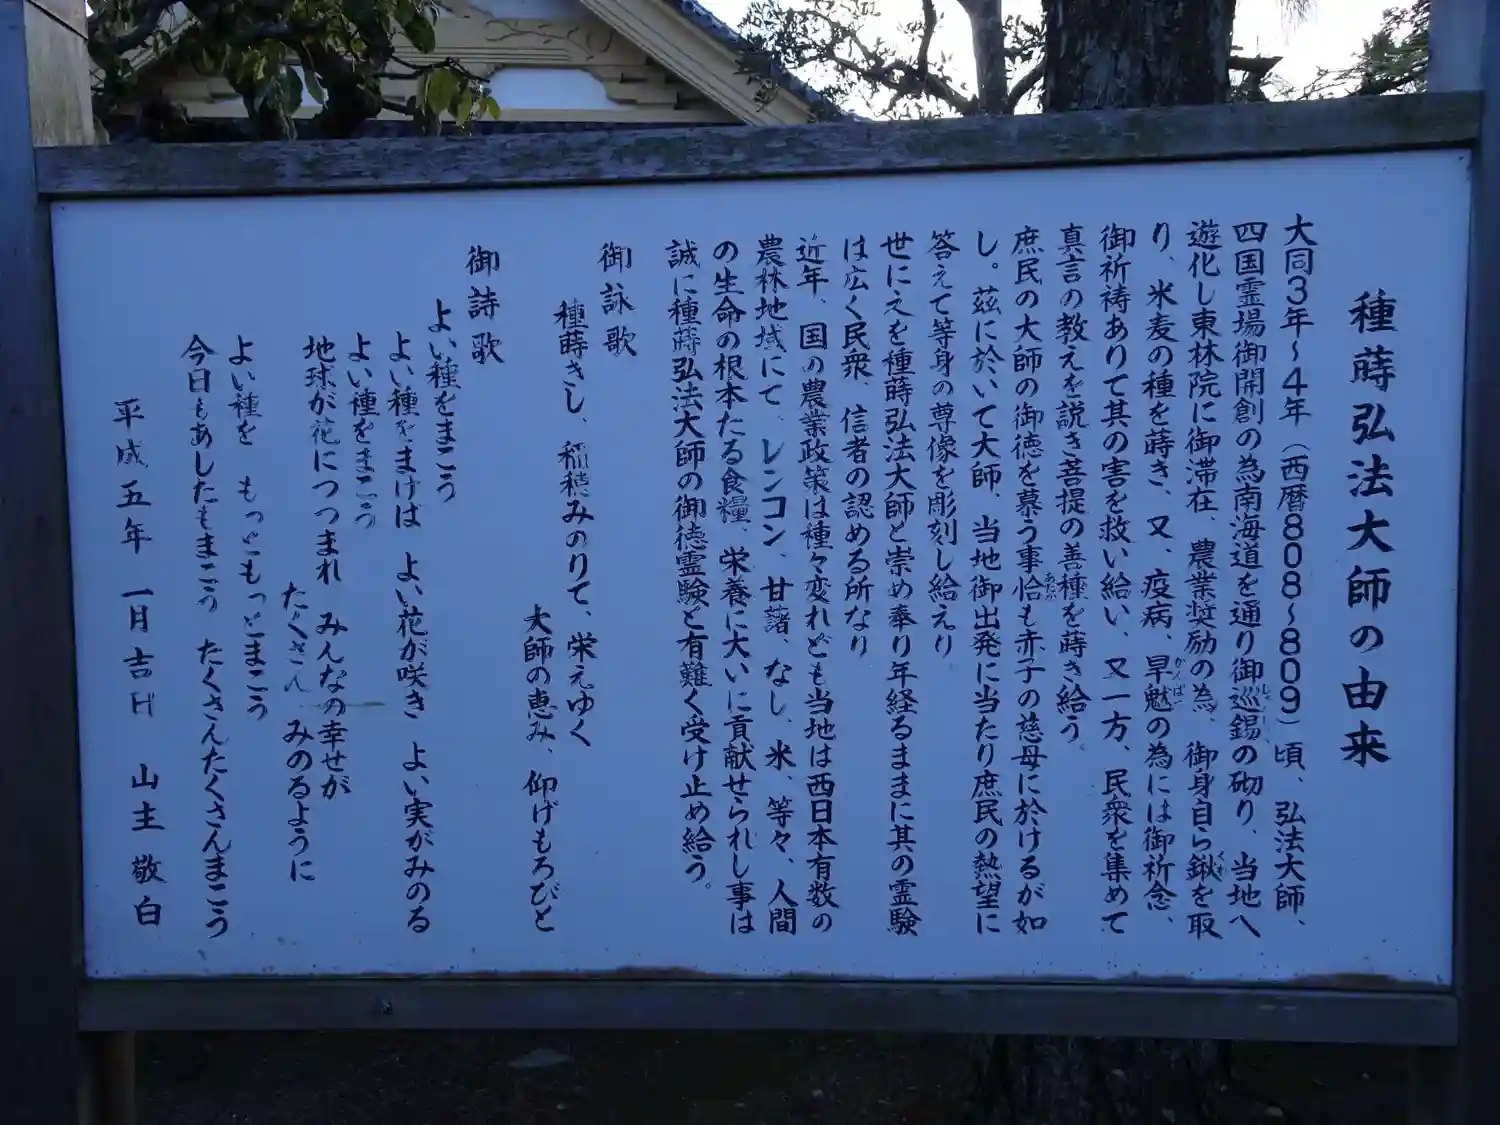 種蒔弘法大師の由来
大同3年～4年（西暦808～809）頃、弘法大師、
四国霊場御開創の為南海道を通り御巡錫の砌り、当地へ
遊化し東林院に御滞在、農業奨励の為、御身自ら鍬を取
り、米麦の種を蒔き、又、疫病、旱魃の為には御祈念、
御祈祷ありて其の害を救い給い、又一方、民衆を集めて
真言の教えを説き菩提の善種を蒔き給う。
庶民の大師の御徳を慕う事恰も赤子の慈母に於けるが如
し。茲に於いて大師、当地御出発に当たり庶民の熱望に
答えて等身の尊像を彫刻し給えり
世にえを種蒔弘法大師と崇め奉り年経るままに其の霊験
は広く民衆、信者の認める所なり
近年、国の農業政策は種々変れども当地は西日本有数の
農林地域にて、レンコン、甘藷、なし、米、等々、人間
の生命の根本たる食糧、栄養に大いに貢献せられし事は
誠に種蒔弘法大師の御徳霊験と有難く受け止め給う。
御詠歌
種蒔きし、稲穂みのりて、栄えゆく
大師の恵み、仰げもろびと
御詩歌
よい種をまこう
よい種をまけば よい花が咲き よい実がみのる
よい種をまこう
地球が花につつまれ みんなの幸せが
たくさん みのるように
よい種を もっともっとまこう
今日もあしたもまこう たくさんたくさんまこう
平成五年 一月吉日 山主 敬白